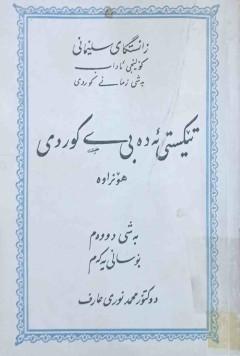 زانستگای سلیمانی
کۆلیجی ئاداب
بەشی زمانی کوردی
تێکستی ئەدەبی ی کوردی
هۆنراوە
بەشی دووەم
بۆسانی یەکەم
دوکتۆر محمد نوری عارف